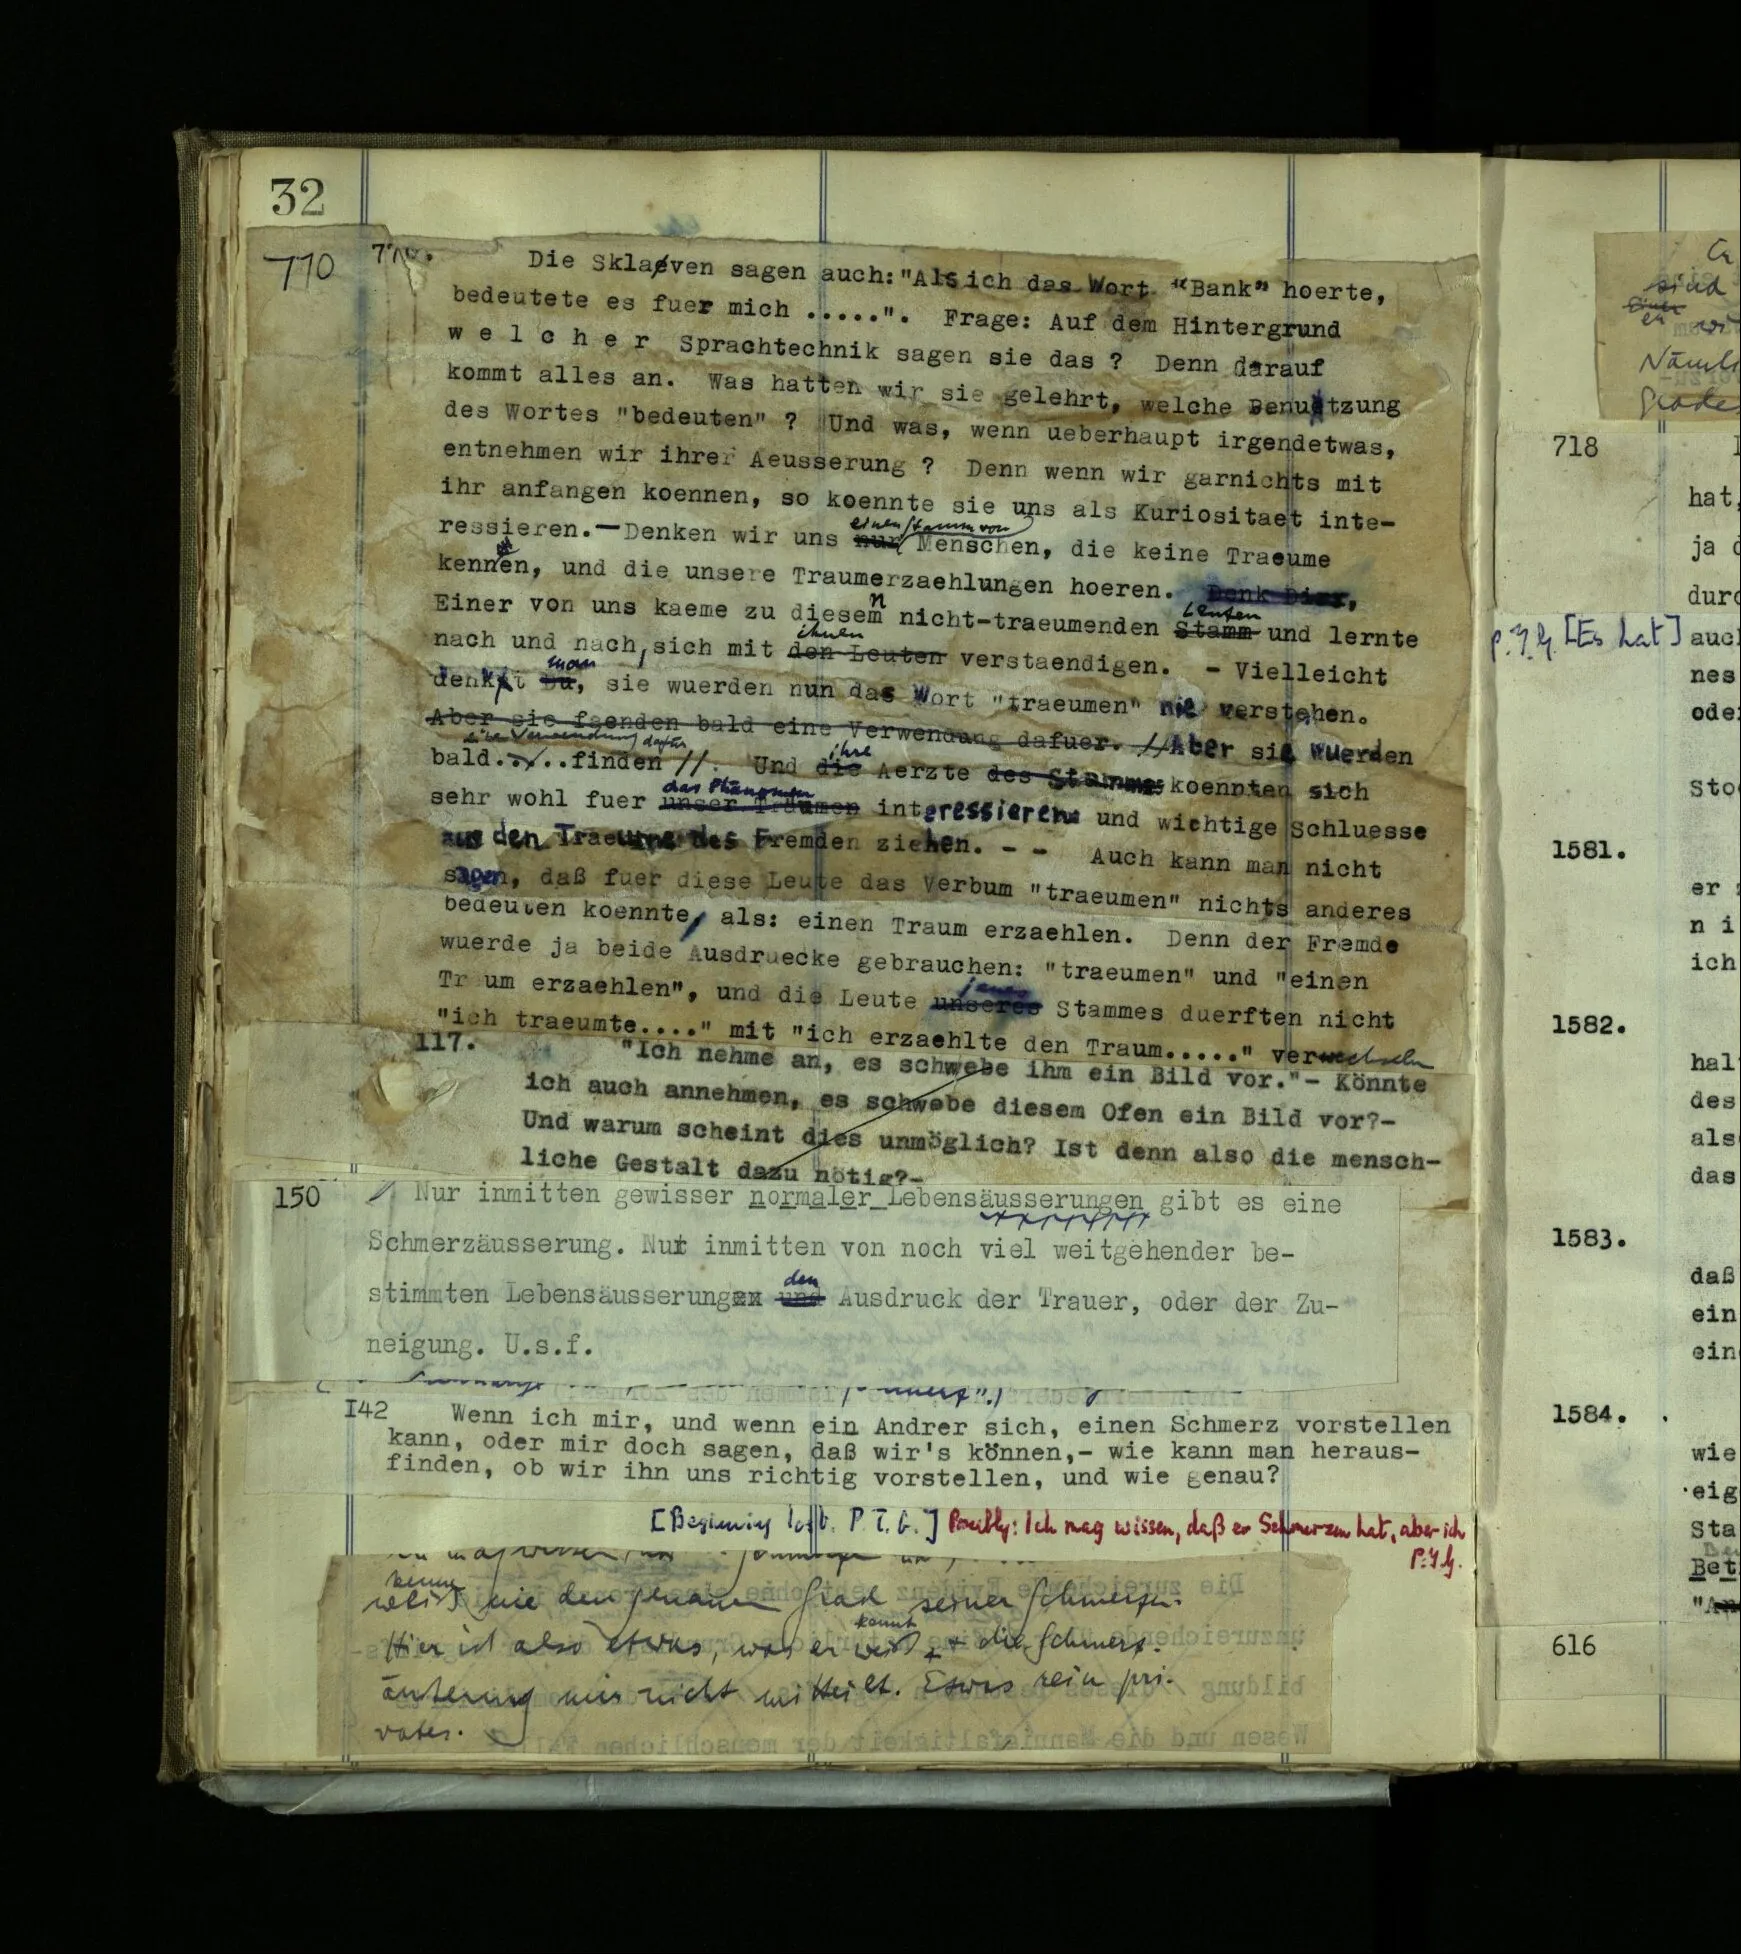 32
770 770. Die Sklaven sagen auch:"Als ich das Wort "Bank" hoerte,
bedeutete es fuer mich .....". Frage: Auf dem Hintergrund
w e l c h e r Sprachtechnik sagen sie das ? Denn darauf
kommt alles an. Was hatten wir sie gelehrt, welche Benuetzung
des Wortes "bedeuten" ? Und was, wenn ueberhaupt irgendetwas,
entnehmen wir ihrer Aeusserung ? Denn wenn wir garnichts mit
ihr anfangen koennen, so koennte sie uns als Kuriositaet inte-
einen Stamm von
ressieren.— Denken wir uns nur Menschen, die keine Traeume
kennen, und die unsere Traumerzaehlungen hoeren. Denk Dir,
Leuten
Einer von uns kaeme zu diesen nicht-traeumenden Stamm und lernte
ihnen
nach und nach, sich mit den Leuten verstaendigen. - Vielleicht
man
denkt Du, sie wuerden nun das Wort "traeumen" nie verstehen.
Aber sie faenden bald eine Verwendung dafuer. // Aber sie wuerden
eine Verwendung dafür ihre
bald.....finden //. Und die Aerzte des Stammes koennten sich
das Phänomen
sehr wohl fuer unser Träumen interessieren und wichtige Schluesse
aus den Traeume des Fremden ziehen. - - Auch kann man nicht
sagen, daß fuer diese Leute das Verbum "traeumen" nichts anderes
bedeuten koennte, als: einen Traum erzaehlen. Denn der Fremde
wuerde ja beide Ausdruecke gebrauchen: "traeumen" und "einen
jenes
Tr um erzaehlen", und die Leute unseres Stammes duerften nicht
"ich traeumte...." mit "ich erzaehlte den Traum....." verwechseln
117. "Ich nehme an, es schwebe ihm ein Bild vor."- Könnte
ich auch annehmen, es schwebe diesem Ofen ein Bild vor?-
Und warum scheint dies unmöglich? Ist denn also die mensch-
liche Gestalt dazu nötig?-
150 / Nur inmitten gewisser normaler Lebensäusserungen gibt es eine
Schmerzäusserung. Nur inmitten von noch viel weitgehender be-
den
stimmten Lebensäusserungen und Ausdruck der Trauer, oder der Zu-
neigung. U.s.f.
I42 Wenn ich mir, und wenn ein Andrer sich, einen Schmerz vorstellen
kann, oder mir doch sagen, daß wir's können,- wie kann man heraus-
finden, ob wir ihn uns richtig vorstellen, und wie genau?
[Beginning lost. P.T.G.] Possibly: Ich mag wissen, daß er Schmerzen hat, aber ich
P.T.G.
kenne
weiß nie den genauen Grad seiner Schmerzen.
kennt
Hier ist also etwas, was er weiß + die Schmerz-
äußerung mir nicht mitteilt. Etwas rein pri-
vates.
sind
Nämli
Grade
718
hat,
ja d
durc
P.T.G. [Es hat] auch
nes
oder
Sto
1581.
er
n i
ich
1582.
hal
des
als
das
1583.
daß
ein
ein
1584.
wie
eig
Sta
Bet
616